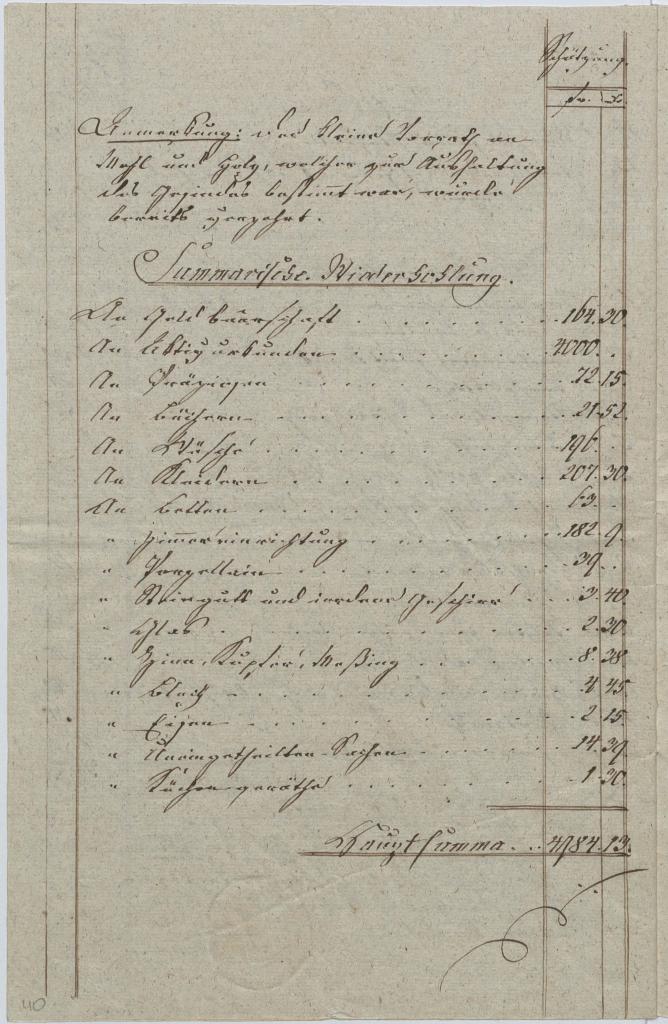 Schätzung.
fr. x
Anmerkung: Der kleine Vorrath an
Mehl und Holz, welcher zur Aushaltung
des Gesindes bestimmt war, wurde
bereits verzehrt.
Summarische Wiederholung.
An Geld baarschaft . . . . . . . 164. 30.
An Aktivurkunden . . . . . . . 4000. .
An Präziosen . . . . . . . . 72. 15.
An Büchern . . . . . . . . 21. 52.
An Wäsche . . . . . . . . 196. .
An Kleidern . . . . . . . . 207. 30.
An Betten . . . . . . . . 63. .
" Zimmereinrichtung . . . . . . 182. 9.
" Porzellain . . . . . . . . 39. .
" Steingutt und irdene Geschirr . . 3. 40.
" Glas . . . . . . . . . 2. 30.
" Zinn, Kupfer, Meßing . . . . . 8. 38.
" Blech . . . . . . . . . 4. 45.
" Eisen . . . . . . . . . 2. 15.
" Uneingetheilten Sachen . . . . . 14. 39.
" Küchengeräthe . . . . . . . 1. 30.
Hauptsumma . . 4984. 13.
40